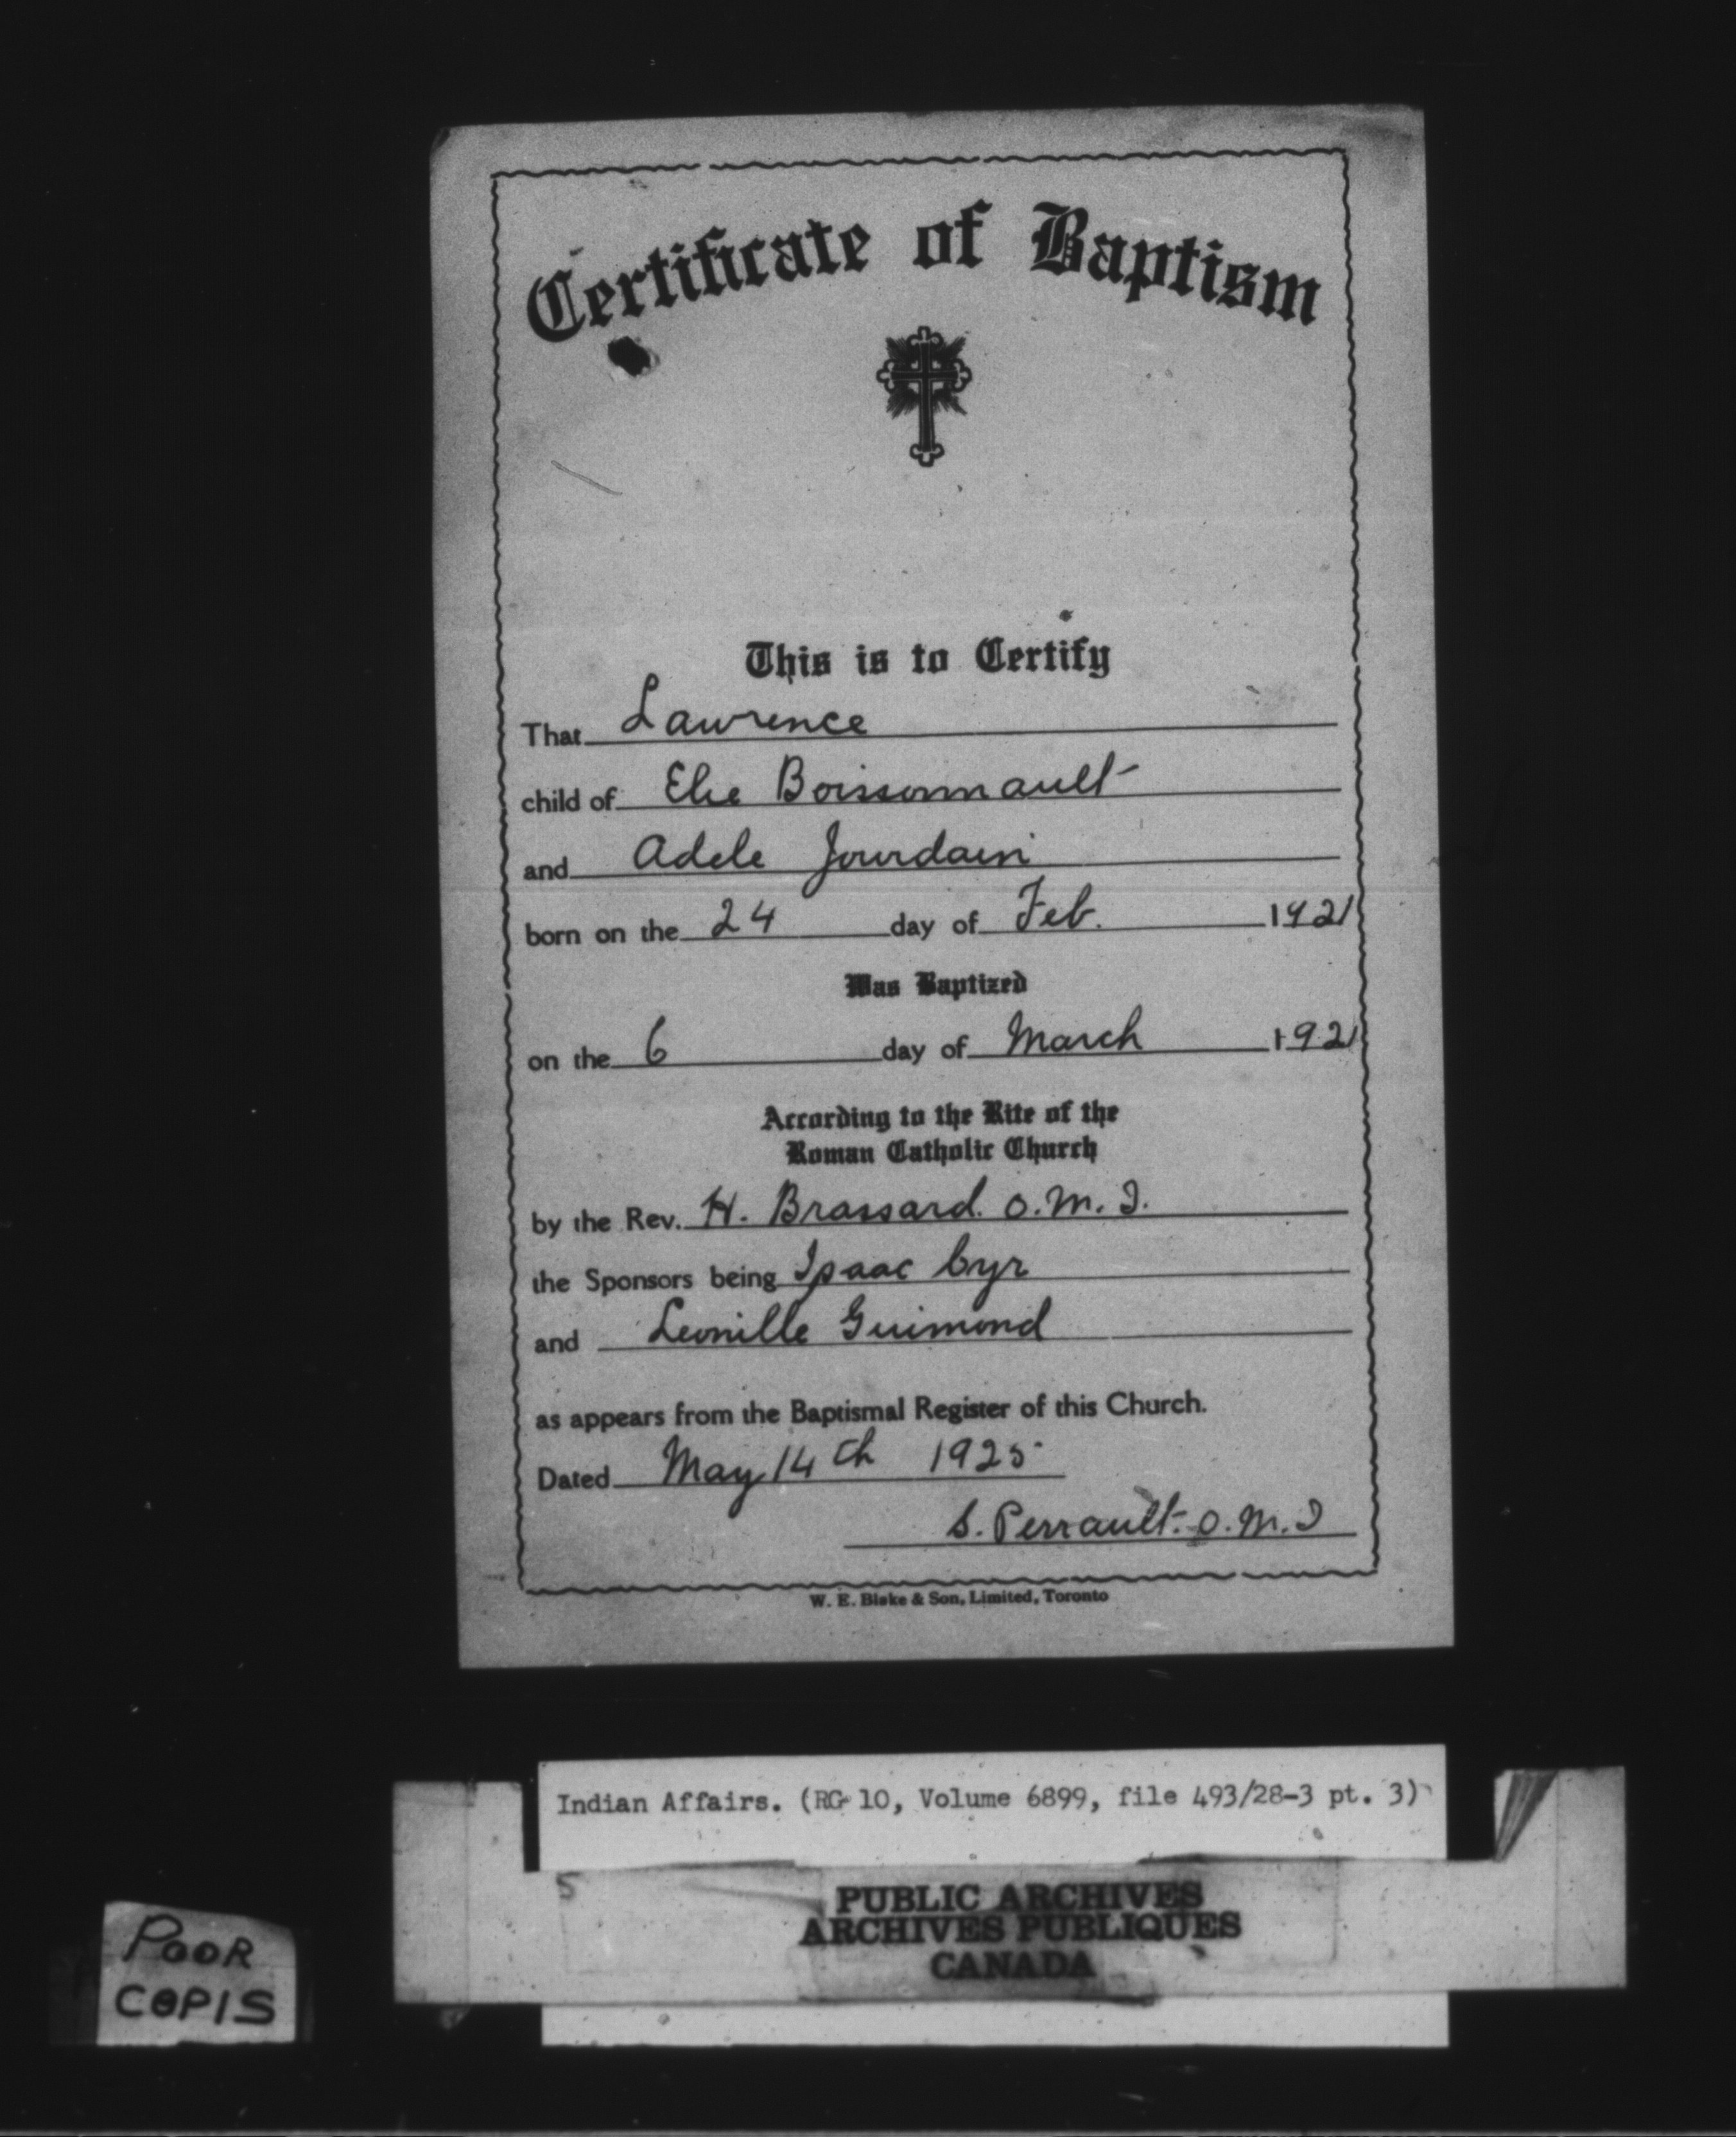 Certificate of Baptism
This is to Certify
That Lawrence
child of Elie Boissonnault
and Adele Jourdain
born on the 24 day of Feb. 1921
Was Baptized
on the 6 day of March 1921
According to the Rite of the
Roman Catholic Church
by the Rev. H. Brassard. O.M.I.
the Sponsors being Isaac Cyr
and Leonille Guimond
as appears from the Baptismal Register of this Church.
Dated May 14th 1925
S. Perrault. O.M.I
W. E. Blake & Son, Limited, Toronto
Indian Affairs. (RG 10, Volume 6899, file 493/28-3 pt. 3)
5
PUBLIC ARCHIVES
ARCHIVES PUBLIQUES
CANADA
POOR
COPIS